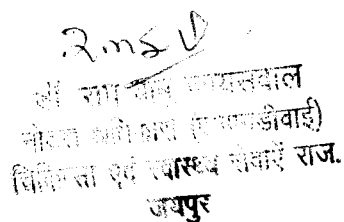 श्री राम बाबू जायसवाल
नोडल अधिकारी (एमएनडीवाई)
चिकित्सा एवं स्वास्थ्य सेवाऐं राज.
जयपुर